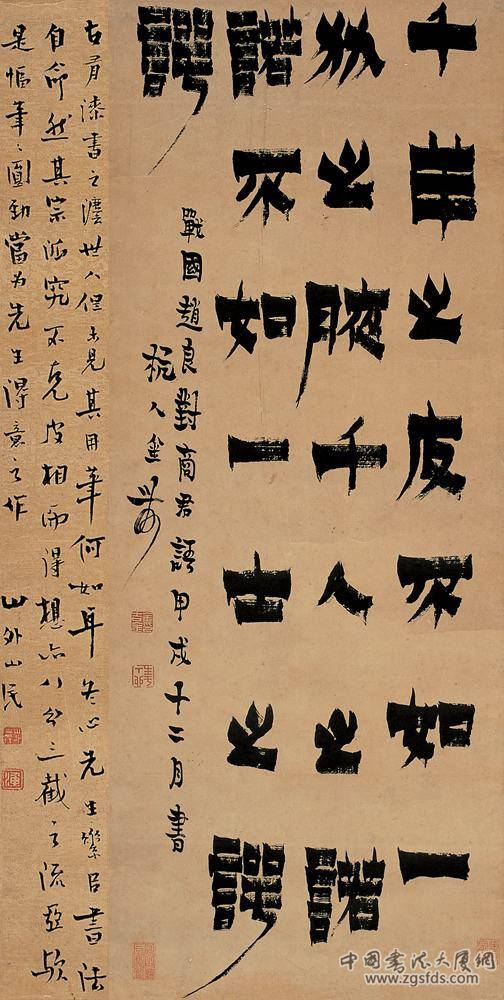 千羊之皮不如一
狐之腋千人之諾
諾不如一士之諤
諤
戰國趙良對商君語甲戌十二月書
杭人金農
古有漆書之灋世人但未見其用筆何如耳冬心先生書法
自命然其宗派究不克皮相而得想亦八分二截之流亞歟
是幅筆筆圓勁當为先生得意之作
山外山民
中国書法大厦網
www.zgsfds.com